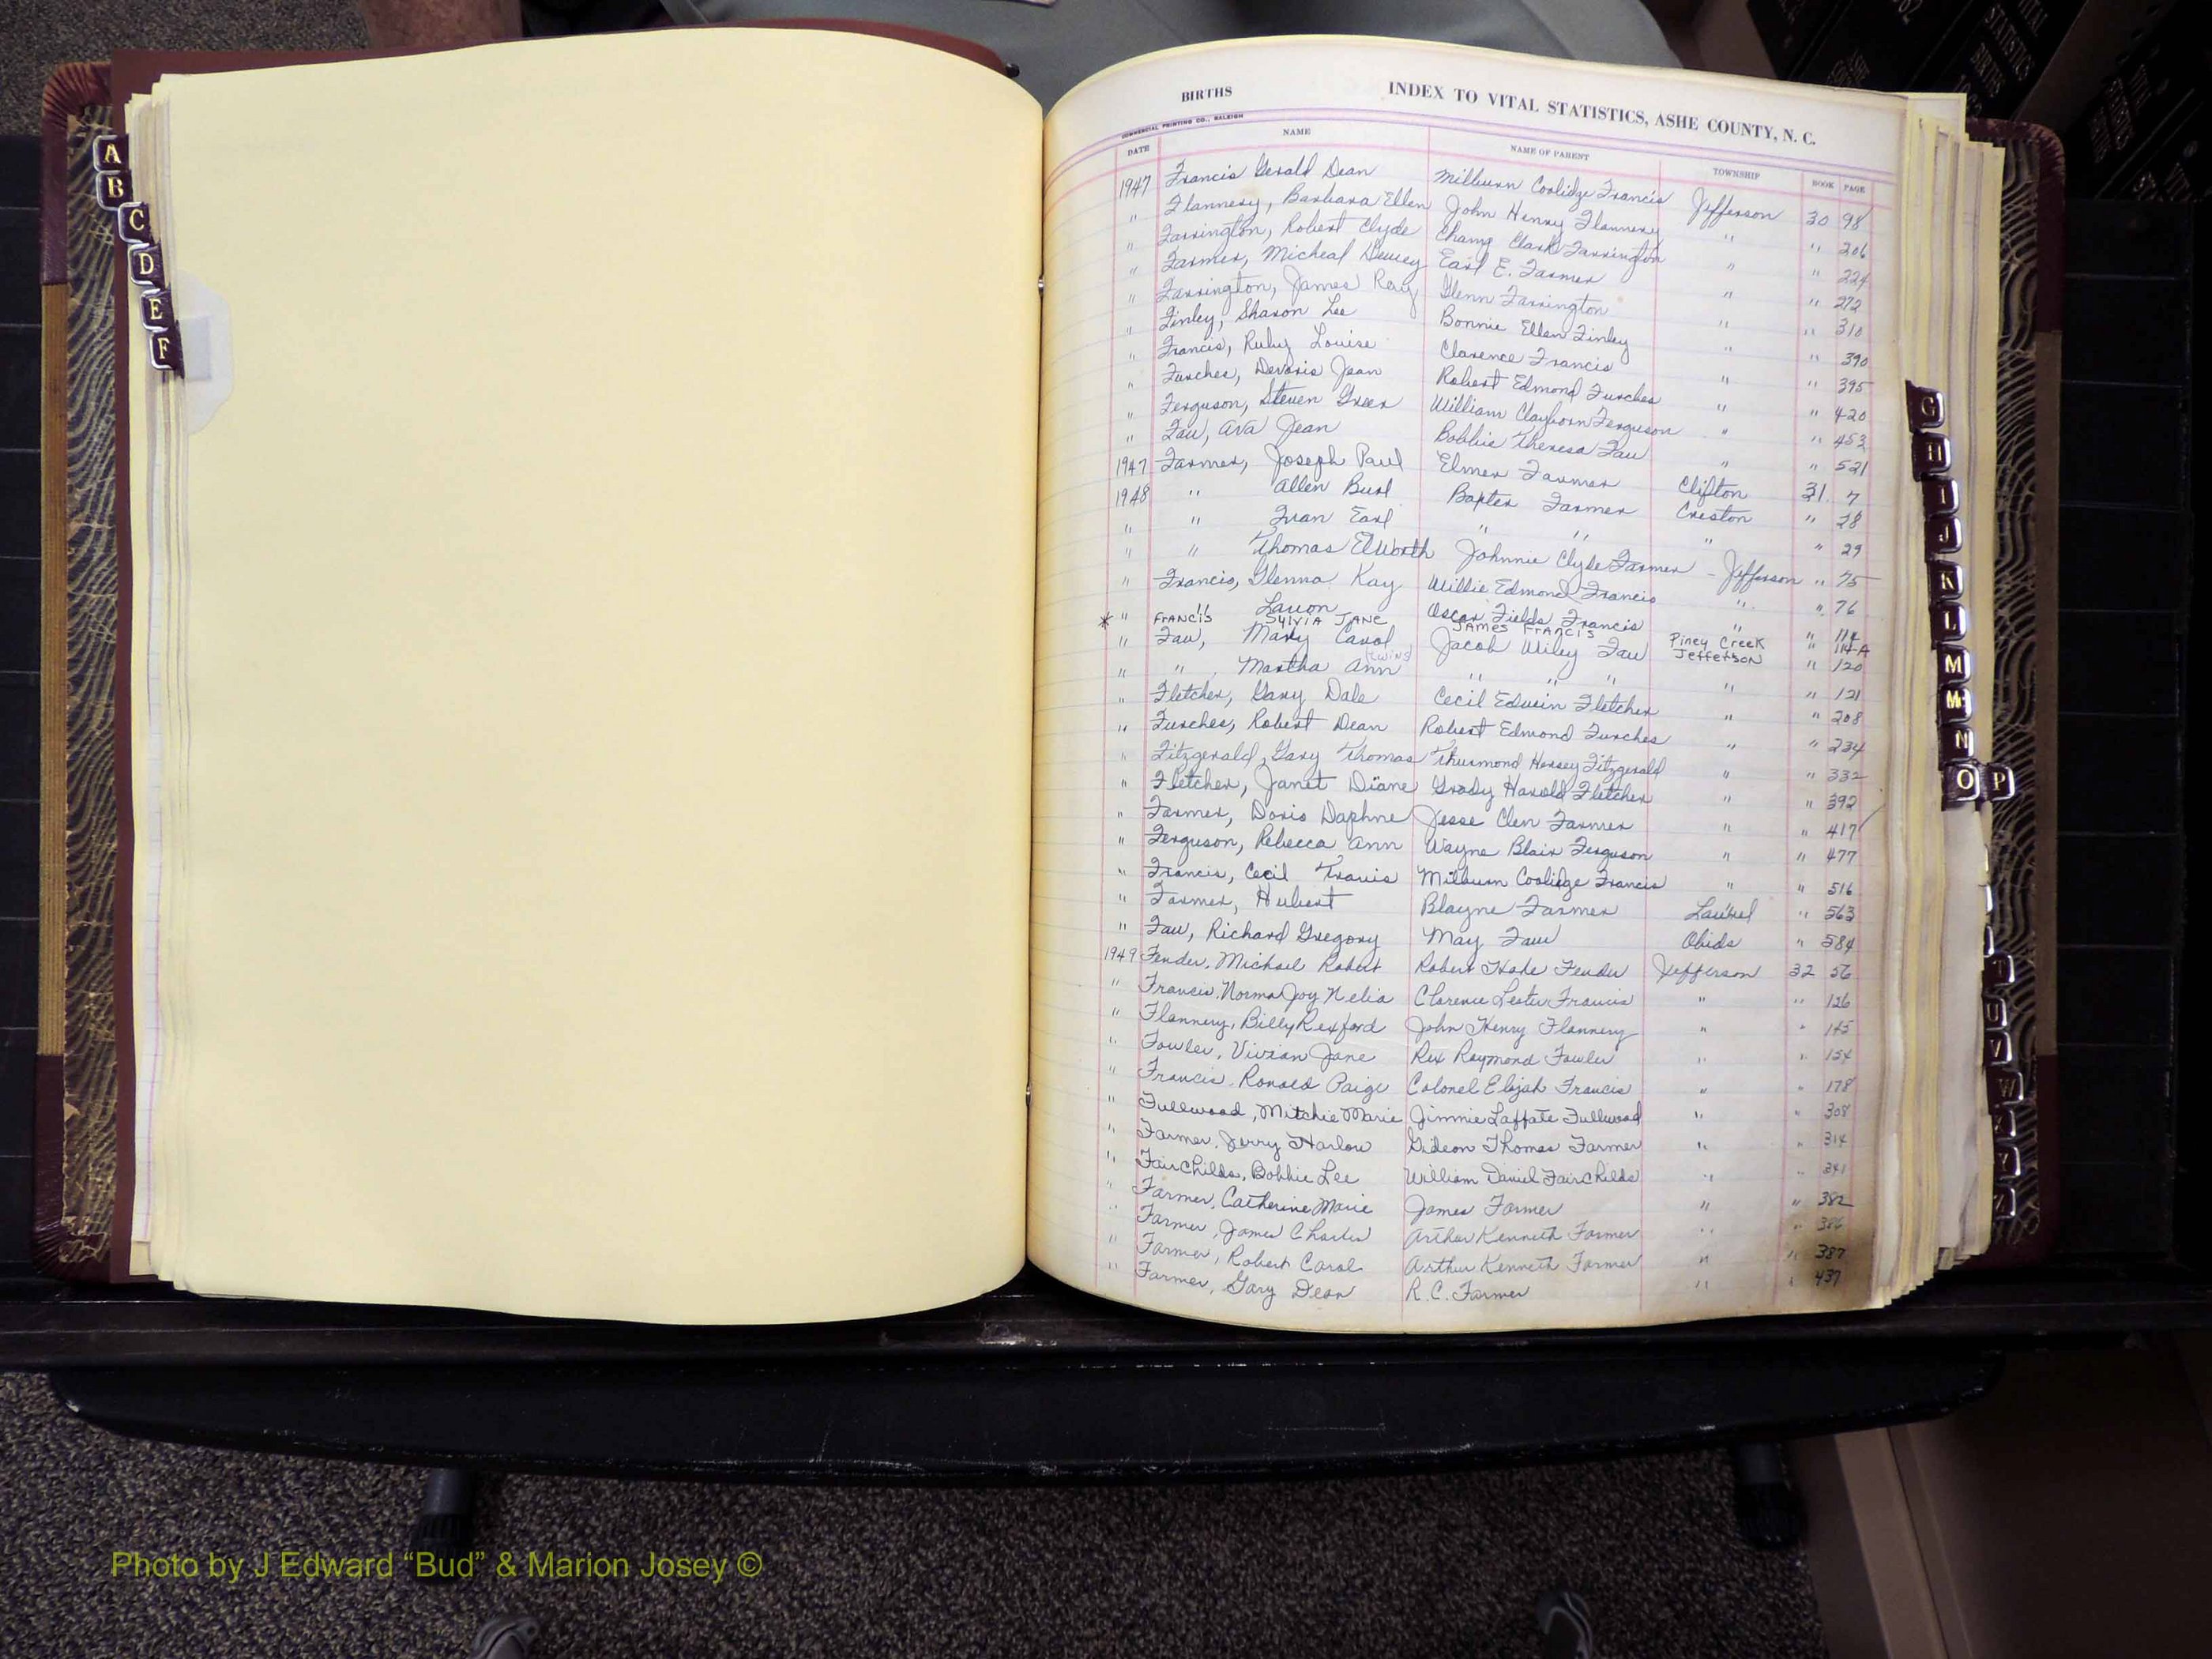 BIRTHS INDEX TO VITAL STATISTICS, ASHE COUNTY, N. C.
COMMERCIAL PRINTING CO., RALEIGH
DATE NAME NAME OF PARENT TOWNSHIP BOOK PAGE
1947 Francis Gerald Dean Milburn Coolidge Francis Jefferson 30 98
" Flannery, Barbara Ellen John Henry Flannery " " 206
" Farrington, Robert Clyde Champ Clark Farrington " " 224
" Farmer, Micheal Dewey Earl E. Farmer " " 272
" Farrington, James Ray Glenn Farrington " " 310
" Finley, Sharon Lee Bonnie Ellen Finley " " 390
" Francis, Ruby Louise Clarence Francis " " 395
" Furches, Devoris Jean Robert Edmond Furches " " 420
" Ferguson, Steven Greer William Clayborn Ferguson " " 453
" Faw, Ava Jean Bobbie Theresa Faw " " 521
1947 Farmer, Joseph Paul Elmer Farmer Clifton 31 7
1948 " Allen Burl Baxter Farmer Creston " 28
" " Ivan Earl " " " " 29
" " Thomas Elworth Johnnie Clyde Farmer - Jefferson " 75
" Francis, Glenna Kay Willie Edmond Francis " " 76
" " Lavon Oscar Fields Francis " " 114
* FRANCIS SYLVIA JANE JAMES FRANCIS Piney Creek " 114-A
" Faw, Mary Carol Jacob Wiley Faw Jefferson " 120
" " , Martha Ann (twins) " " " " " 121
" Fletcher, Gary Dale Cecil Edwin Fletcher " " 208
" Furches, Robert Dean Robert Edmond Furches " " 234
" Fitzgerald, Gary Thomas Thurmond Hersey Fitzgerald " " 332
" Fletcher, Janet Diane Grady Harold Fletcher " " 392
" Farmer, Doris Daphne Jesse Clen Farmer " " 417
" Ferguson, Rebecca Ann Wayne Blair Ferguson " " 477
" Francis, Cecil Travis Milburn Coolidge Francis " " 516
" Farmer, Hubert Blayne Farmer Laurel " 563
" Faw, Richard Gregory May Faw Obids " 584
1949 Fender, Michael Robert Robert Hade Fender Jefferson 32 56
" Francis, Norma Joy Nelia Clarence Lester Francis " " 126
" Flannery, Billy Rexford John Henry Flannery " " 145
" Fowler, Vivian Jane Rex Raymond Fowler " " 154
" Francis, Ronald Paige Colonel Elijah Francis " " 178
" Fullwood, Mitchie Marie Jimmie Laffate Fullwood " " 308
" Farmer, Jerry Harlow Gideon Thomas Farmer " " 314
" Fairchilds, Bobbie Lee William Daniel Fairchilds " " 341
" Farmer, Catherine Marie James Farmer " " 382
" Farmer, James Charles Arthur Kenneth Farmer " " 386
" Farmer, Robert Carol Arthur Kenneth Farmer " " 387
" Farmer, Gary Dean R. C. Farmer " " 437
A
B
C
D
E
F
G
H
I
J
K
L
M
Mc
N
O P
T
U
V
W
Y
Photo by J Edward “Bud” & Marion Josey ©